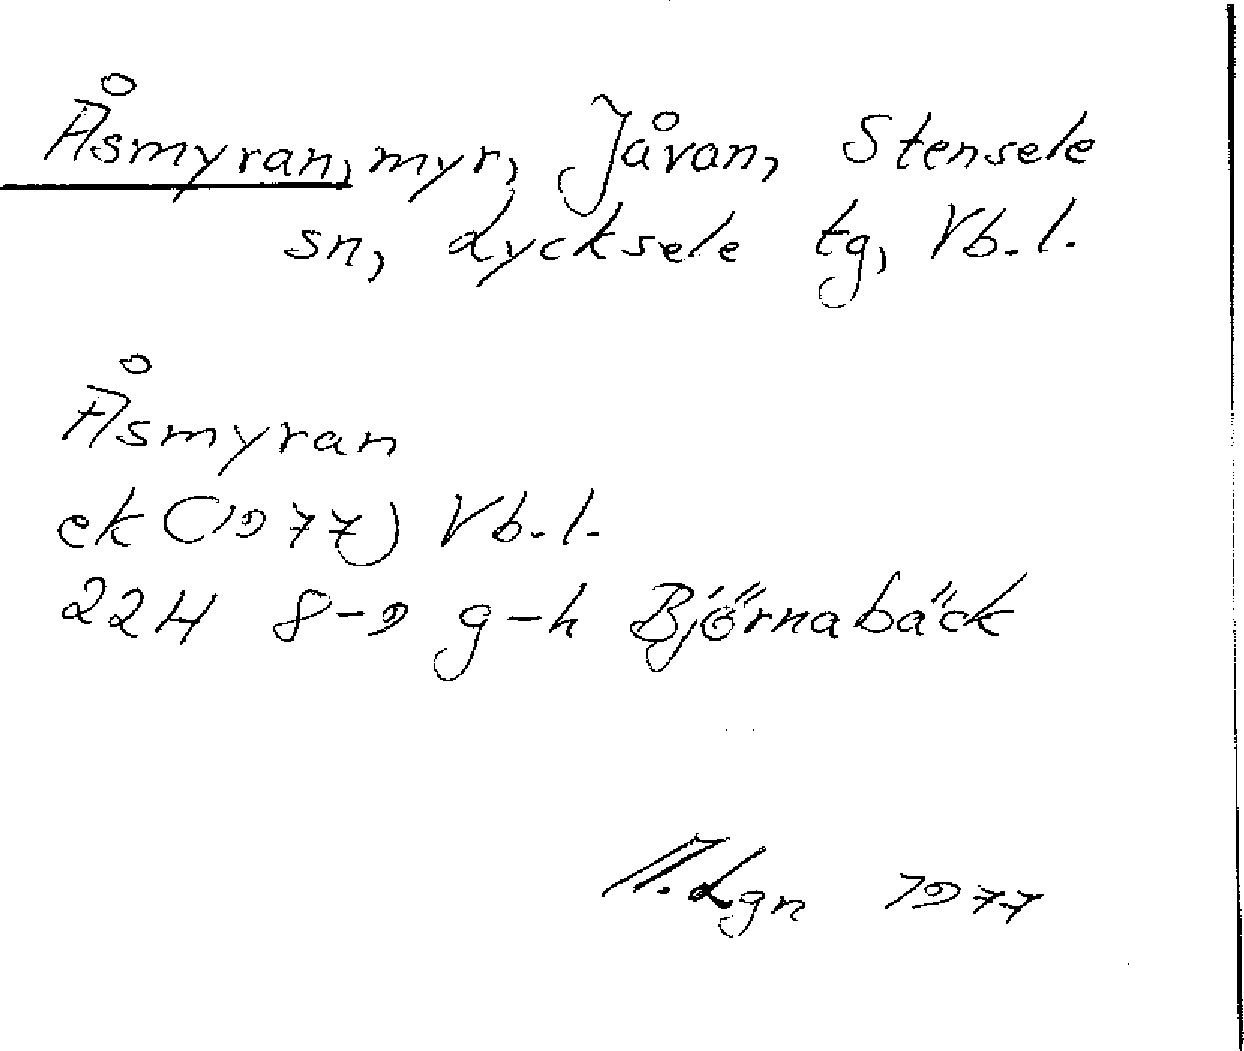 Åsmyran, myr, Jåvan, Stensele
sn, Lycksele tg, Vb. l.
Åsmyran
ek (1977) Vb. l.
22H 8-9 g-h Björnabäck
Lgn 1977